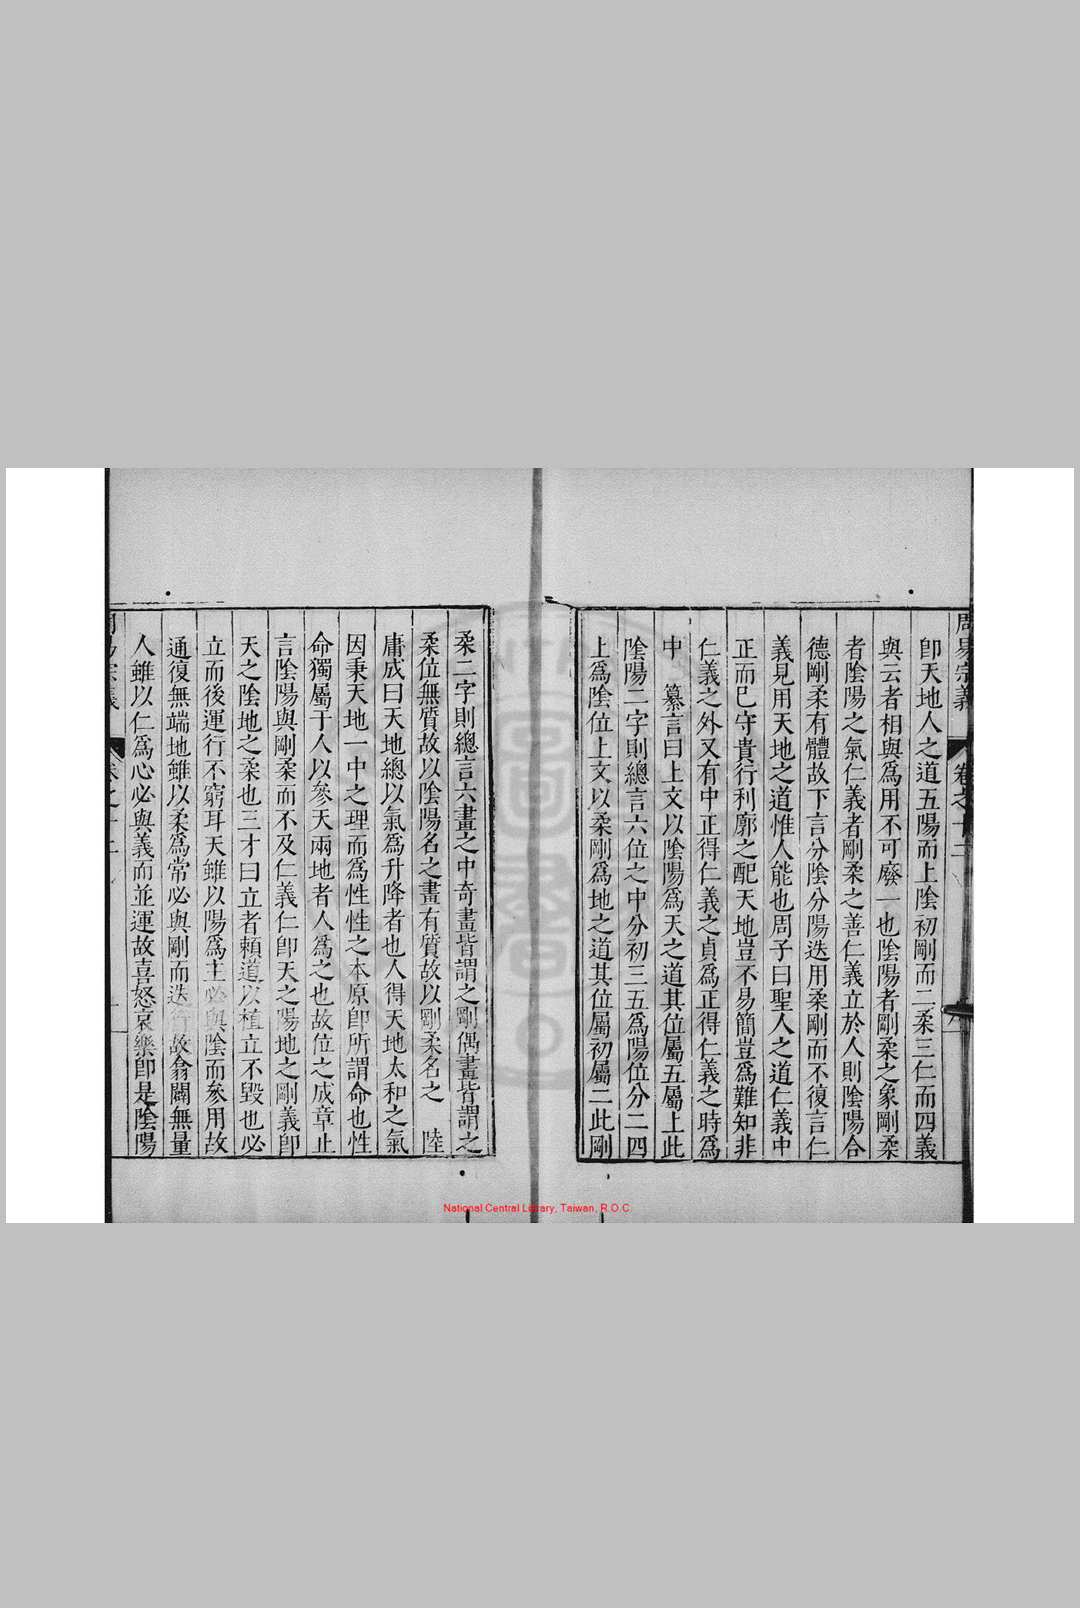 周易宗義 卷之十二
卽天地人之道五陽而上陰初剛而二柔三仁而四義
與云者相與爲用不可廢一也陰陽者剛柔之象剛柔
者陰陽之氣仁義者剛柔之善仁義立於人則陰陽合
德剛柔有體故下言分陰分陽迭用柔剛而不復言仁
義見用天地之道惟人能也周子曰聖人之道仁義中
正而已守貴行利廓之配天地豈不易簡豈爲難知非
仁義之外又有中正得仁義之貞爲正得仁義之時爲
中　纂言曰上文以陰陽爲天之道其位屬五屬上此
陰陽二字則總言六位之中分初三五爲陽位分二四
上爲陰位上文以柔剛爲地之道其位屬初屬二此剛
柔二字則總言六畫之中奇畫皆謂之剛偶畫皆謂之
柔位無質故以陰陽名之畫有質故以剛柔名之　陸
庸成曰天地總以氣爲升降者也人得天地太和之氣
因秉天地一中之理而爲性性之本原卽所謂命也性
命獨屬于人以參天兩地者人爲之也故位之成章止
言陰陽與剛柔而不及仁義仁卽天之陽地之剛義卽
天之陰地之柔也三才曰立者賴道以植立不毀也必
立而後運行不窮耳天雖以陽爲主必與陰而參用故
通復無端地雖以柔爲常必與剛而迭行故翕闢無量
人雖以仁爲心必與義而並運故喜怒哀樂卽是陰陽
周易宗義 卷之十二
National Central Library, Taiwan, R.O.C.